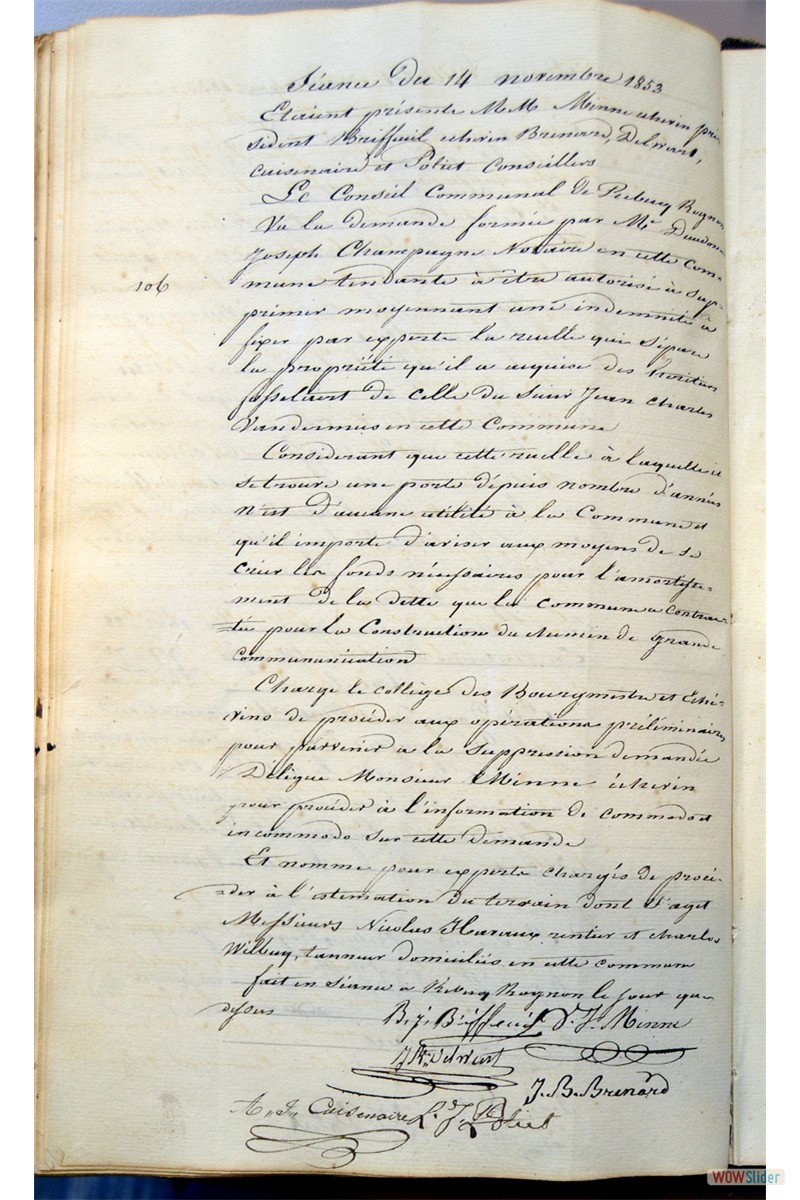 Séance du 14 novembre 1853
Etaient présents MM Minne echevin pré-
sident Briffeuil echevin Brenard, Delwart,
Cuisenaire et Poliet Conseillers
Le Conseil Communal de Rebecq Rognon
Vu la demande formée par Mr Dieudon-
Joseph Champagne Notaire en cette Com-
106
mune tendante à être autorisé à sup-
primer moyennant une indemnité à
fixer par experts la ruelle qui sépare
la propriété qu'il a acquise des héritiers
de celle du Sieur Jean Charles
en cette Commune
Considerant que cette ruelle à laquelle il
se trouve une porte dépuis nombre d'années
n'est d'aucune utilité à la Commune et
qu'il importe d'aviser aux moyens de se
créer les fonds nécessaires pour l'amortisse-
ment de la dette que la commune a contrac-
tée pour la Construction du chemin de grande
communication
Charge le collège des Bourgmestre et Eche-
vins de procéder aux opérations préliminaires
pour parvenir a la suppression demandée
Délègue Monsieur Minne échevin
pour procéder à l'information de commodo et
incommodo sur cette demande
Et nomme pour experts chargés de procé-
der à l'estimation du terrain dont s'agit
Messieurs Nicolas rentier et Charles
tanneur domiciliés en cette commune
fait en séance a Rebecq Rognon le jour que
dessus
B. J. Briffeuil D. J. Minne
Delwart
J. B. Brenard
A. J. Cuisenaire L. J. Poliet
WOWSlider